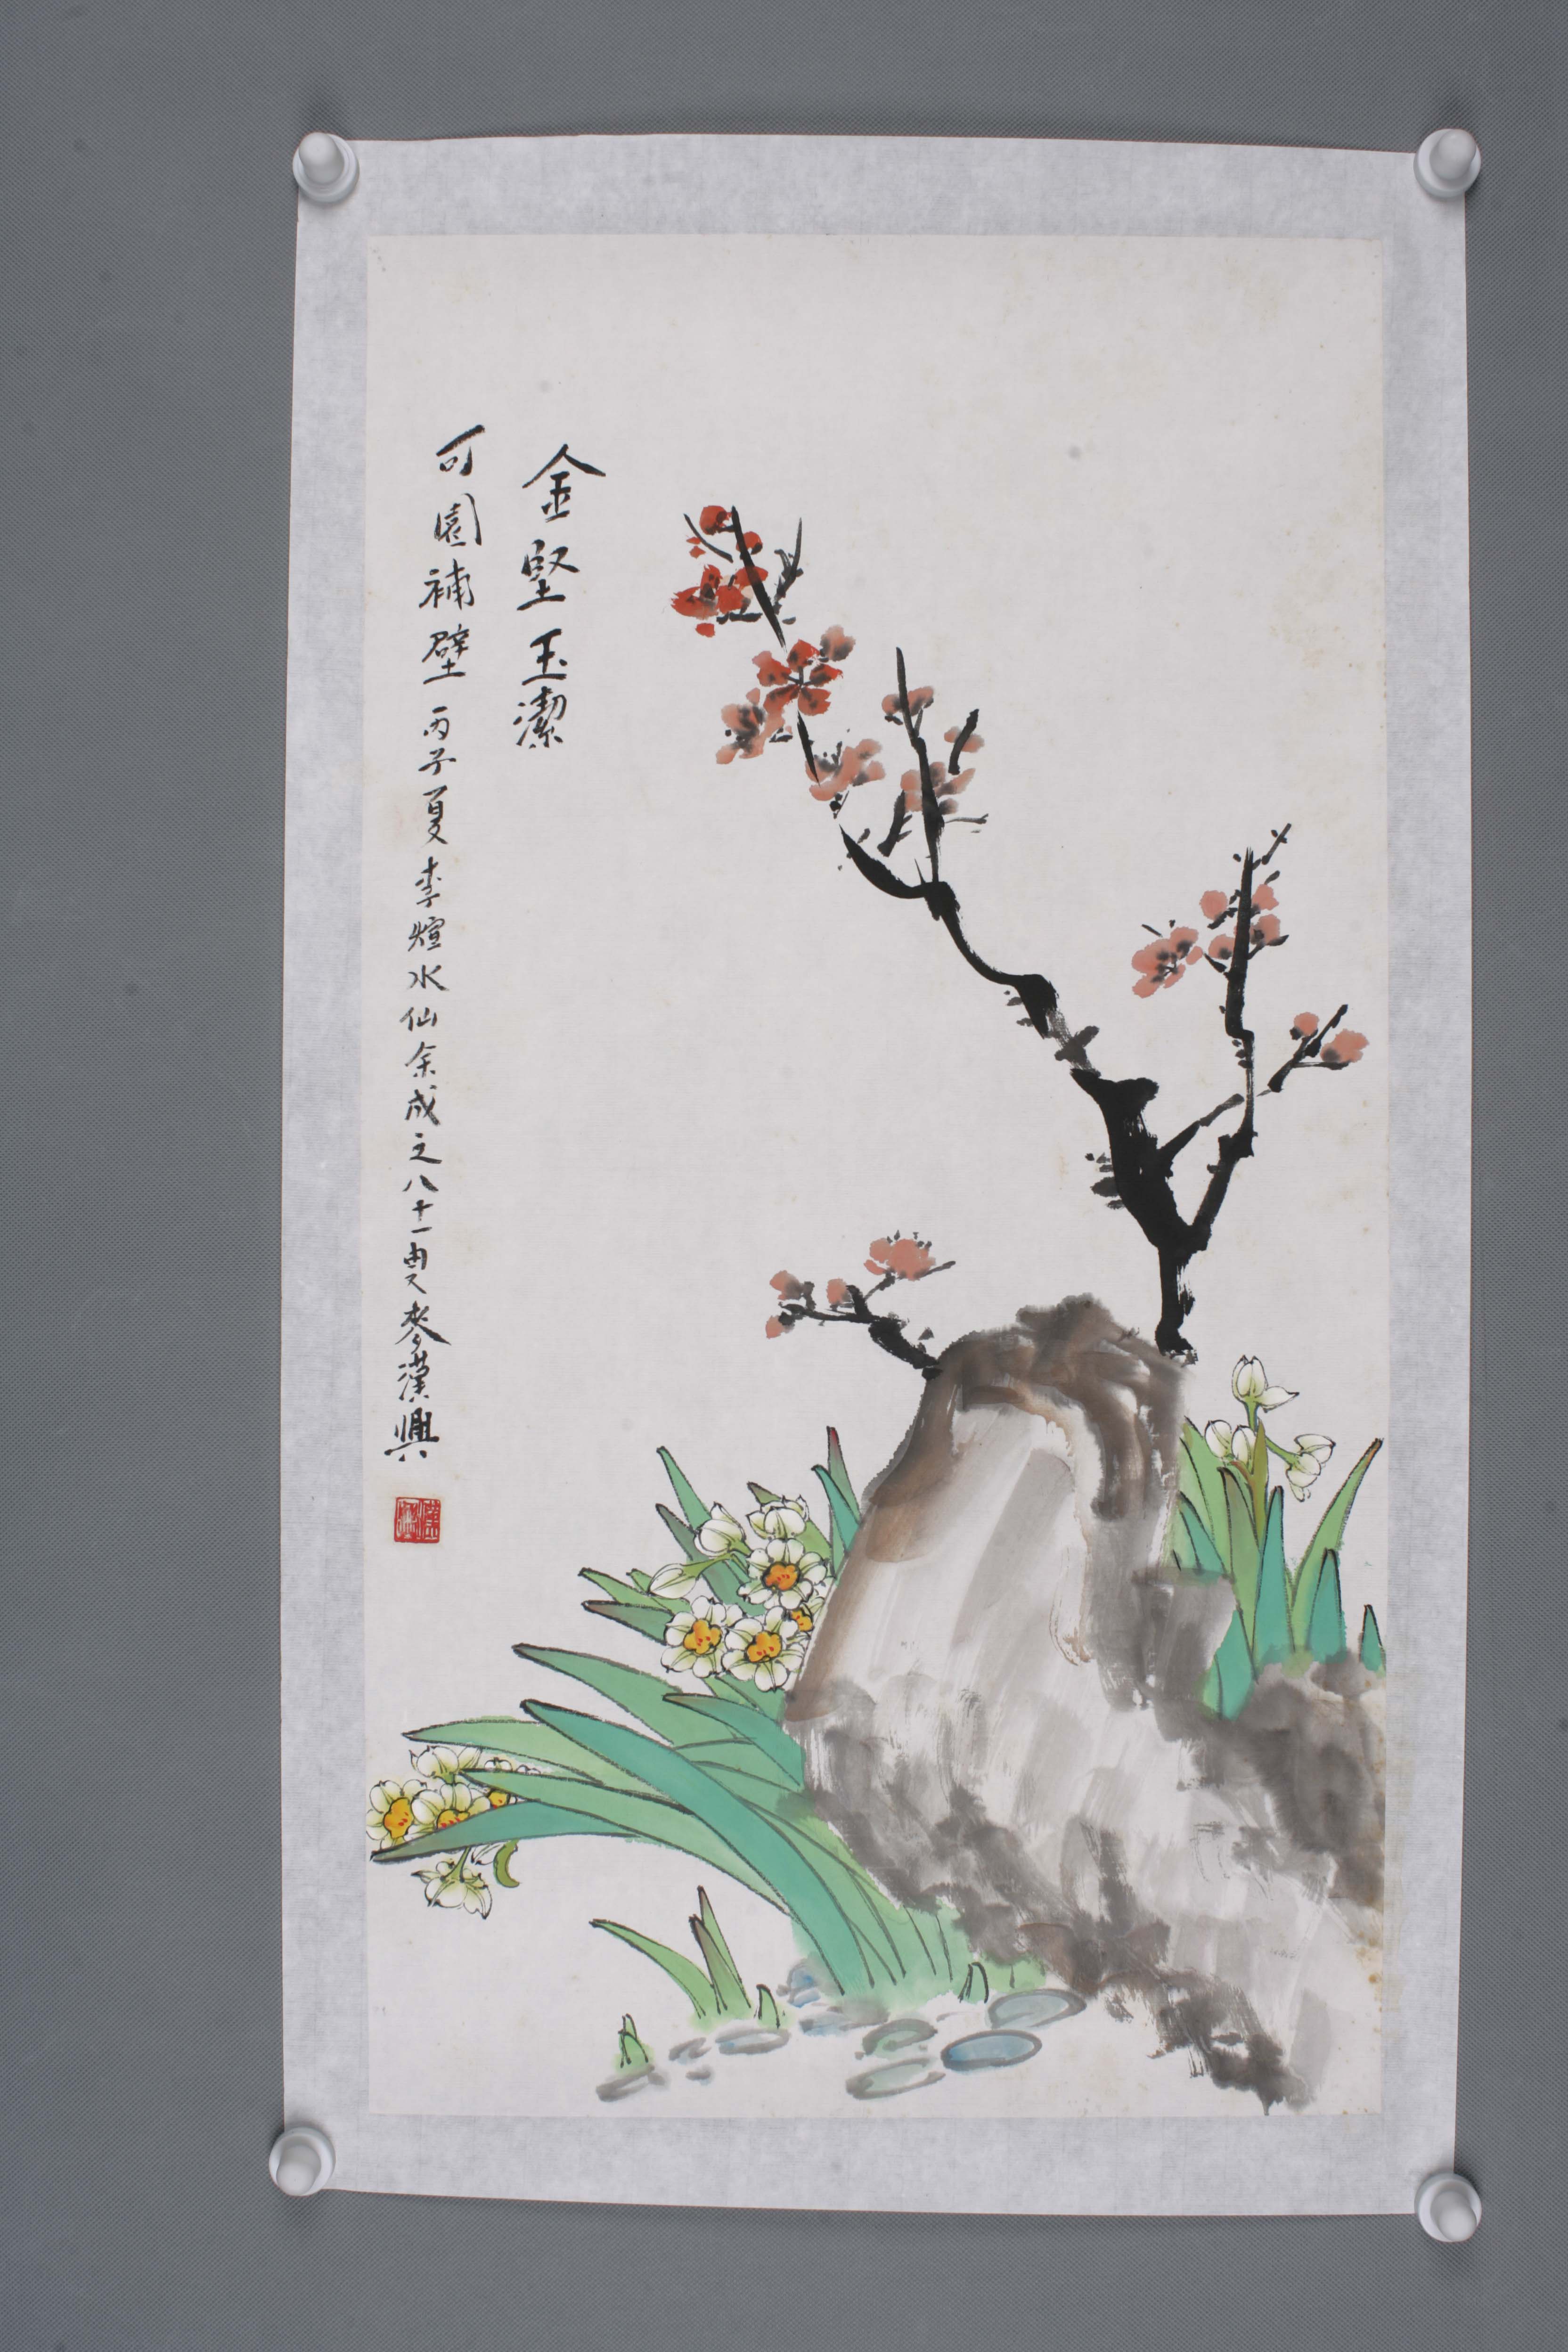 金堅玉潔
可園補壁 丙子夏李煊水仙余成之八十一叟麥漢興